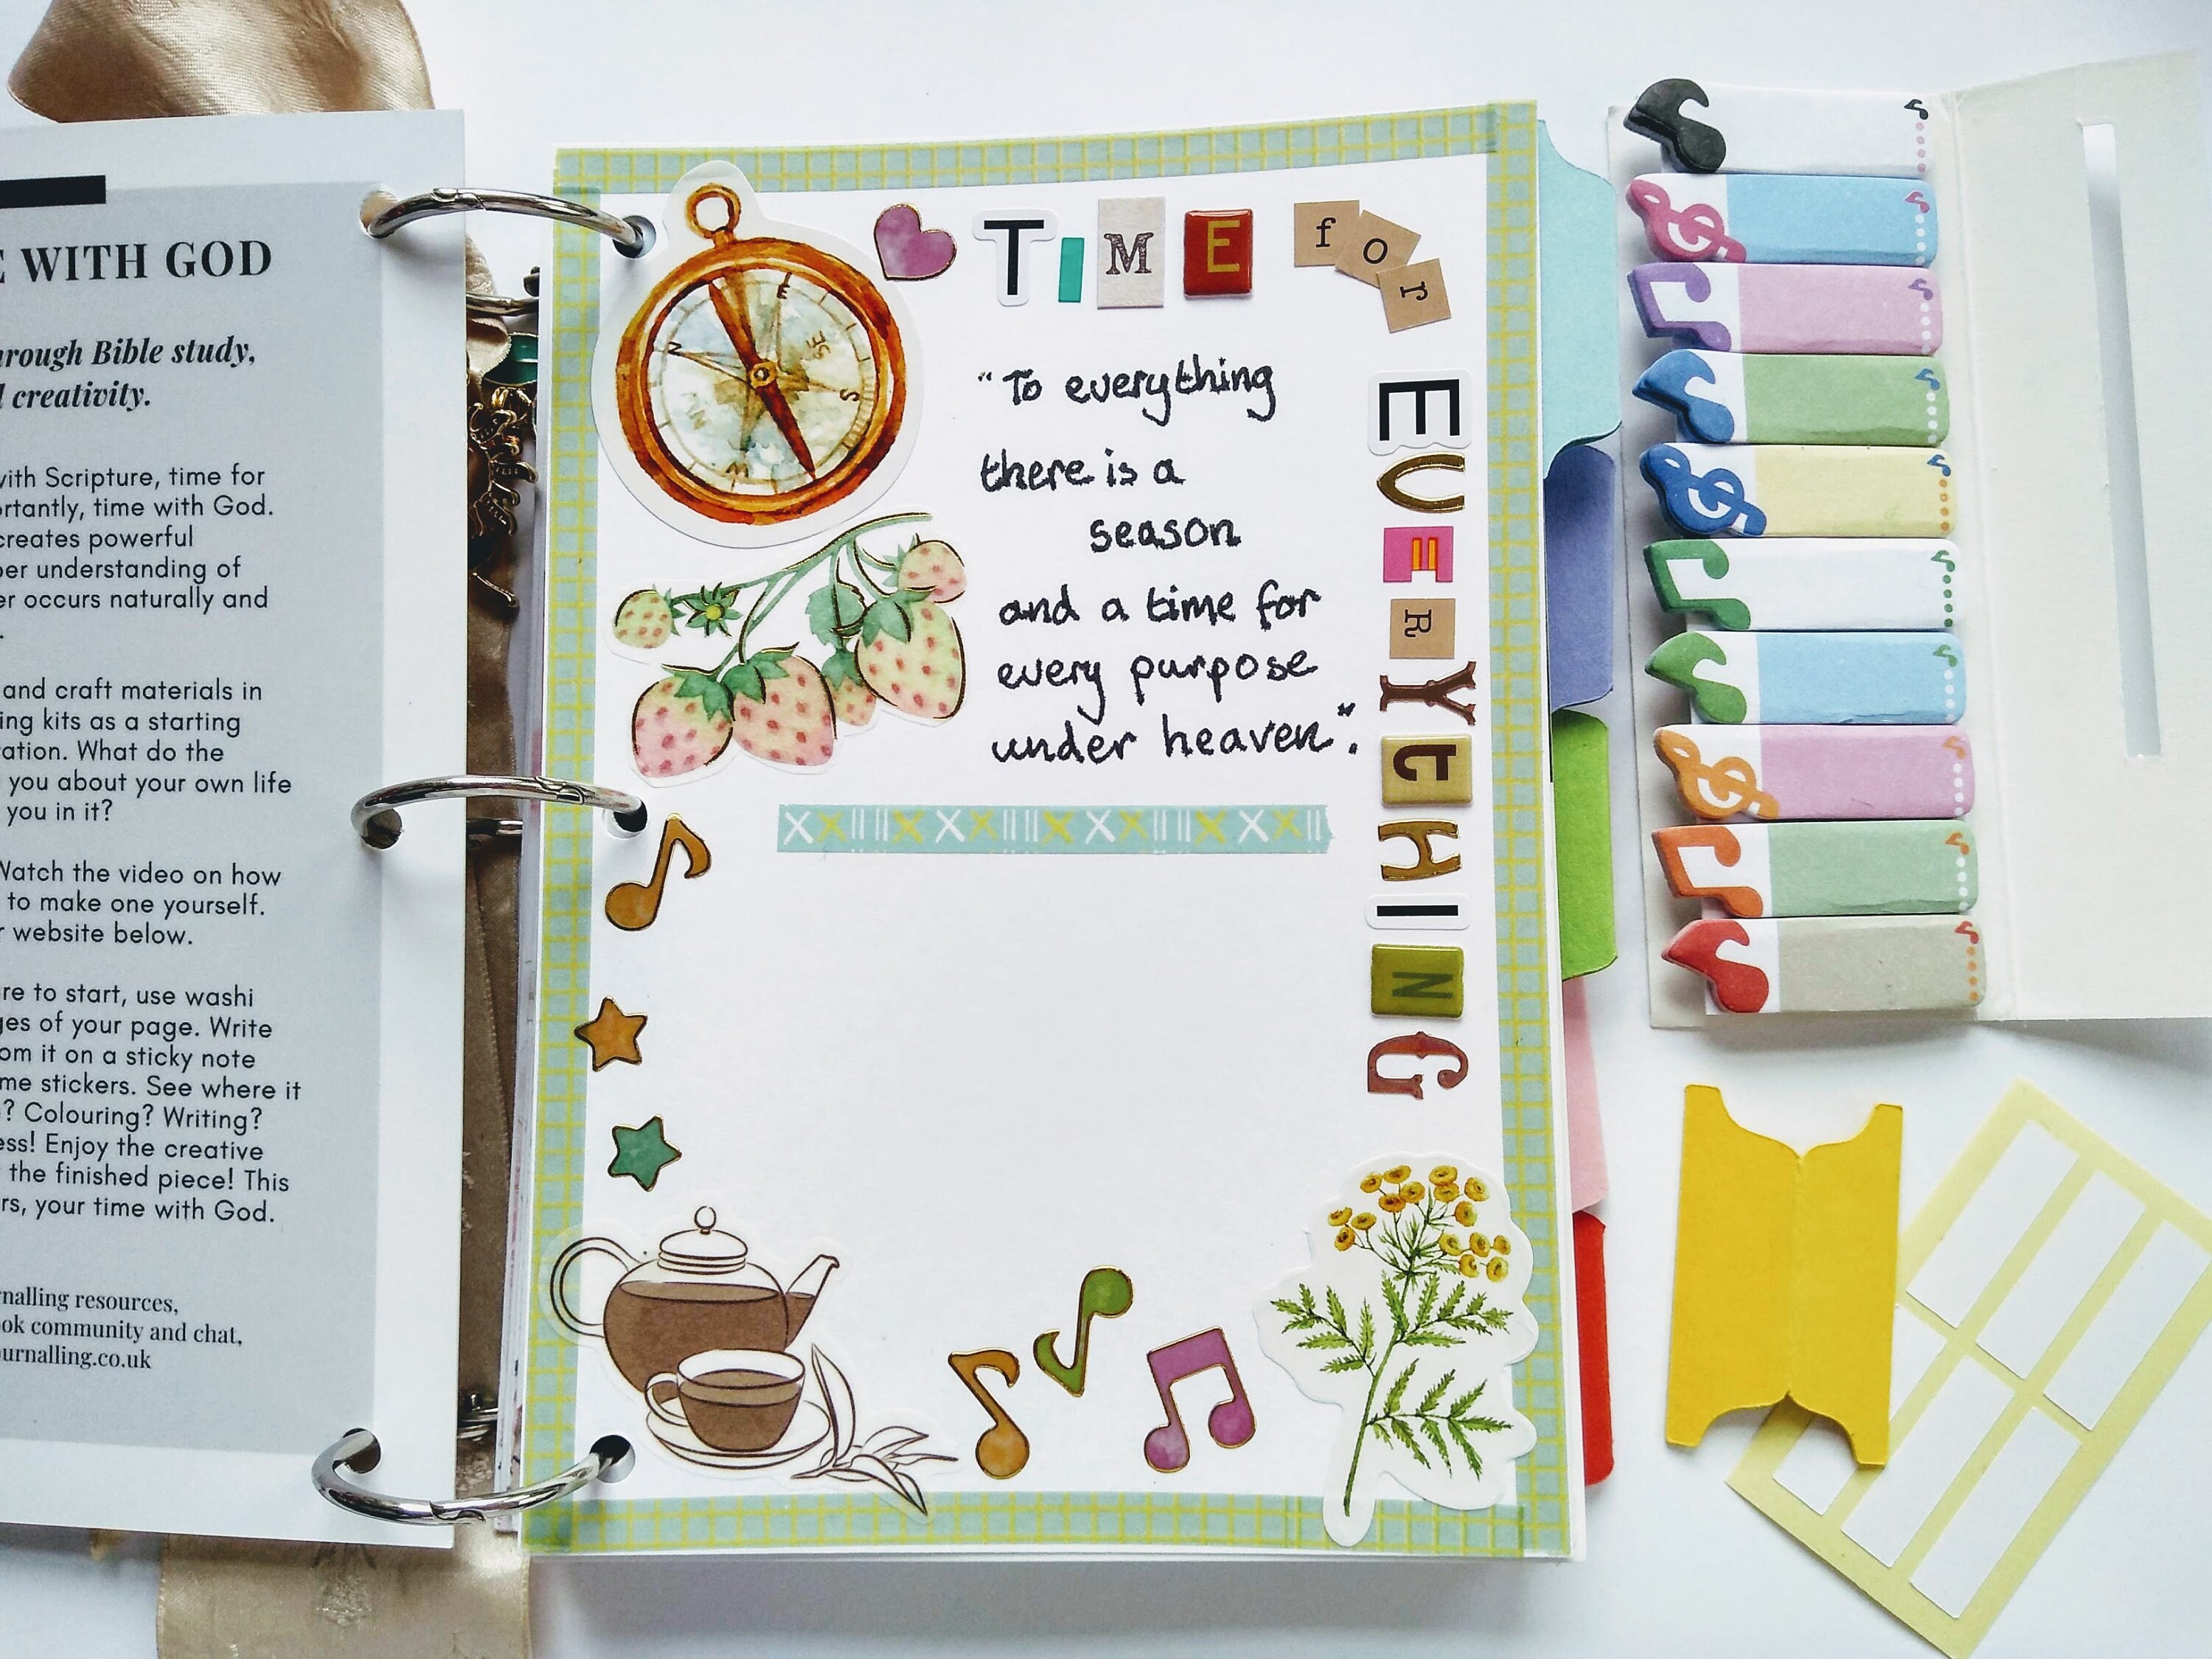 WITH GOD
Bible study,
creativity.
with Scripture, time for
time with God.
creates powerful
understanding of
occurs naturally and
and craft materials in
kits as a starting
What do the
you about your own life
you in it?
Watch the video on how
to make one yourself.
website below.
to start, use washi
of your page. Write
it on a sticky note
stickers. See where it
? Colouring? Writing?
! Enjoy the creative
the finished piece! This
your time with God.
resources,
community and chat,
TIME for
EVERYtHING
"To everything
there is a
season
and a time for
every purpose
under heaven".
E
SE
S
N
W